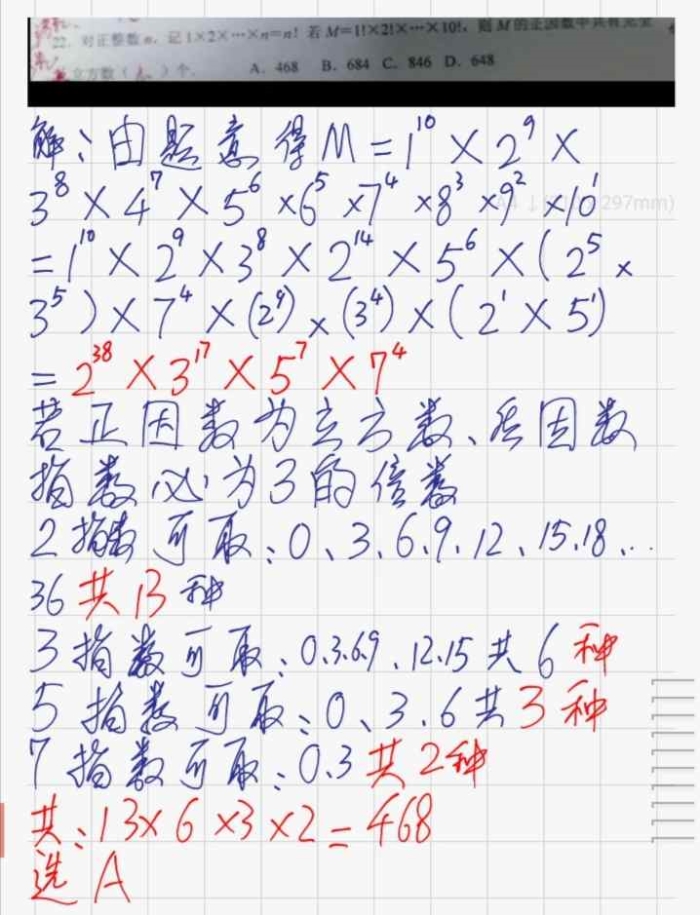 22. 对正整数 n，记 1×2×⋯×n=n! 若 M=1!×2!×⋯×10!，则 M 的正因数中共有完全
立方数（ ）个. A. 468 B. 684 C. 846 D. 648
解：由题意得 M = 1¹⁰ × 2⁹ ×
3⁸ × 4⁷ × 5⁶ × 6⁵ × 7⁴ × 8³ × 9² × 10¹
= 1¹⁰ × 2⁹ × 3⁸ × 2¹⁴ × 5⁶ × (2⁵ ×
3⁵) × 7⁴ × (2⁹) × (3⁴) × (2¹ × 5¹)
= 2³⁸ × 3¹⁷ × 5⁷ × 7⁴
若正因数为立方数、质因数
指数必为3的倍数
2指数可取：0、3、6.9.12、15.18、..
36共13种
3指数可取：0.3.6.9、12.15共6种
5指数可取：0、3.6共3种
7指数可取：0.3共2种
共：13×6×3×2=468
选A